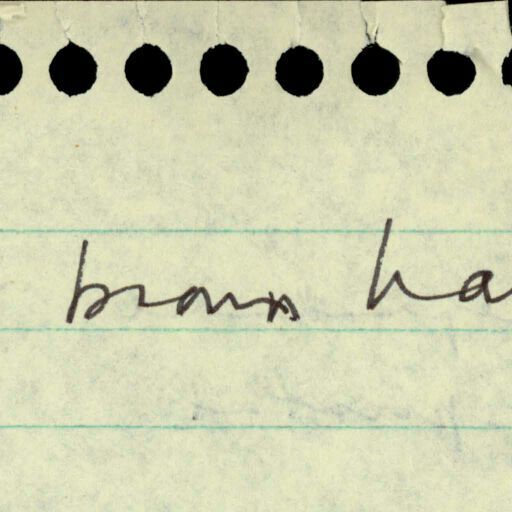 brown ha